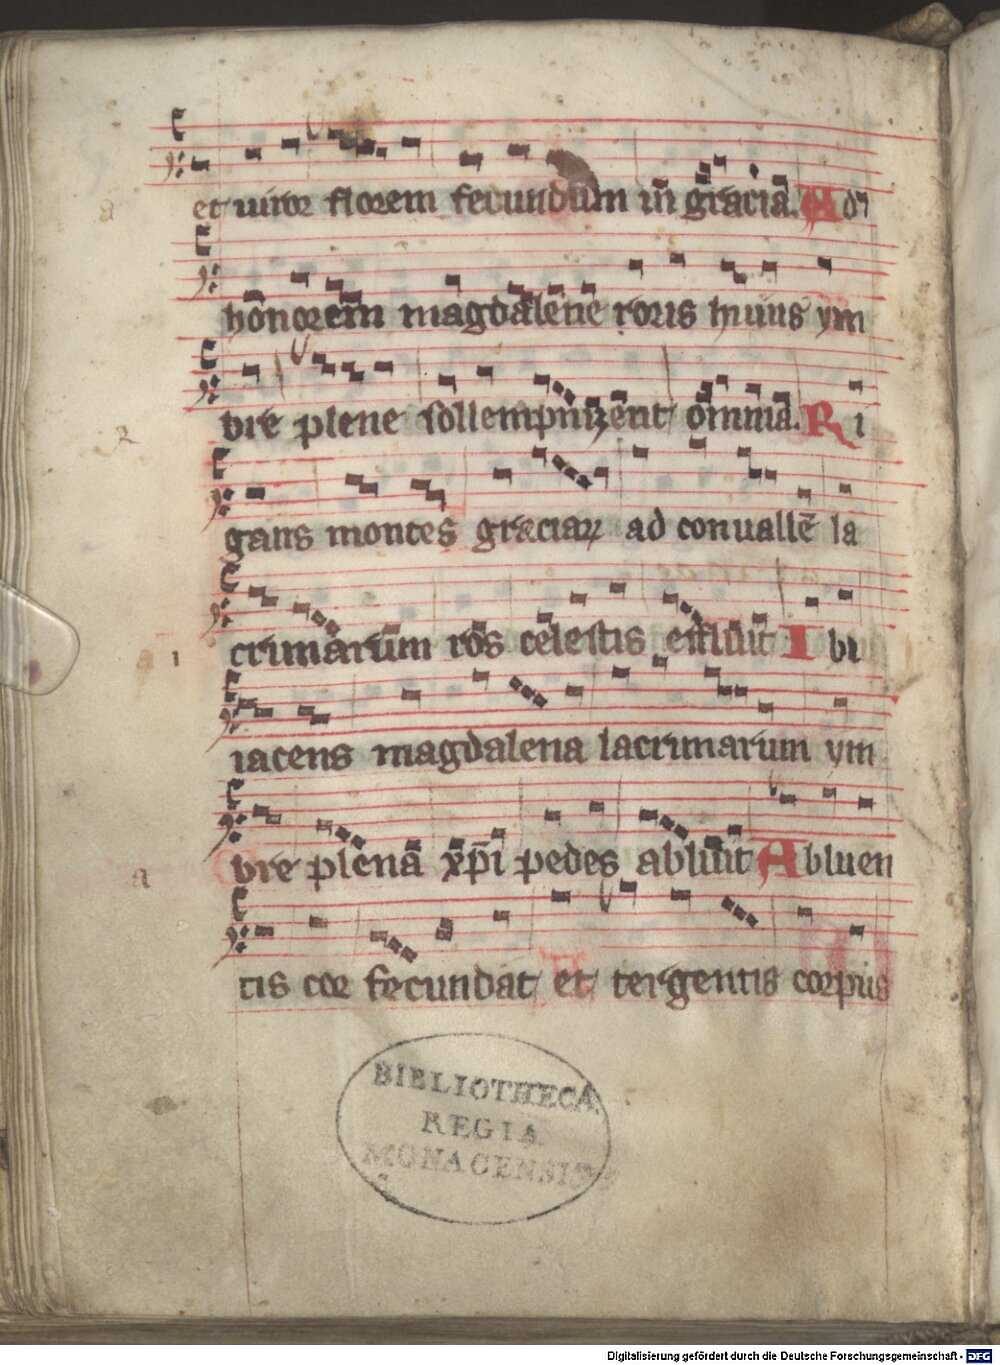 et uiror florem fecundum in gracia. Ad
honorem magdalene roris huius ym
bre plene sollempnizent omnia. Ri
gans montes graciaꝝ ad conuallē la
crimarum ros celestis effluit I bi
iacens magdalena lacrimarum ym
bre plena xp̄i pedes abluit Abluen
tis cor fecundat et tergentis corpus
BIBLIOTHECA
REGIA
MONACENSIS
Digitalisierung gefördert durch die Deutsche Forschungsgemeinschaft - DFG